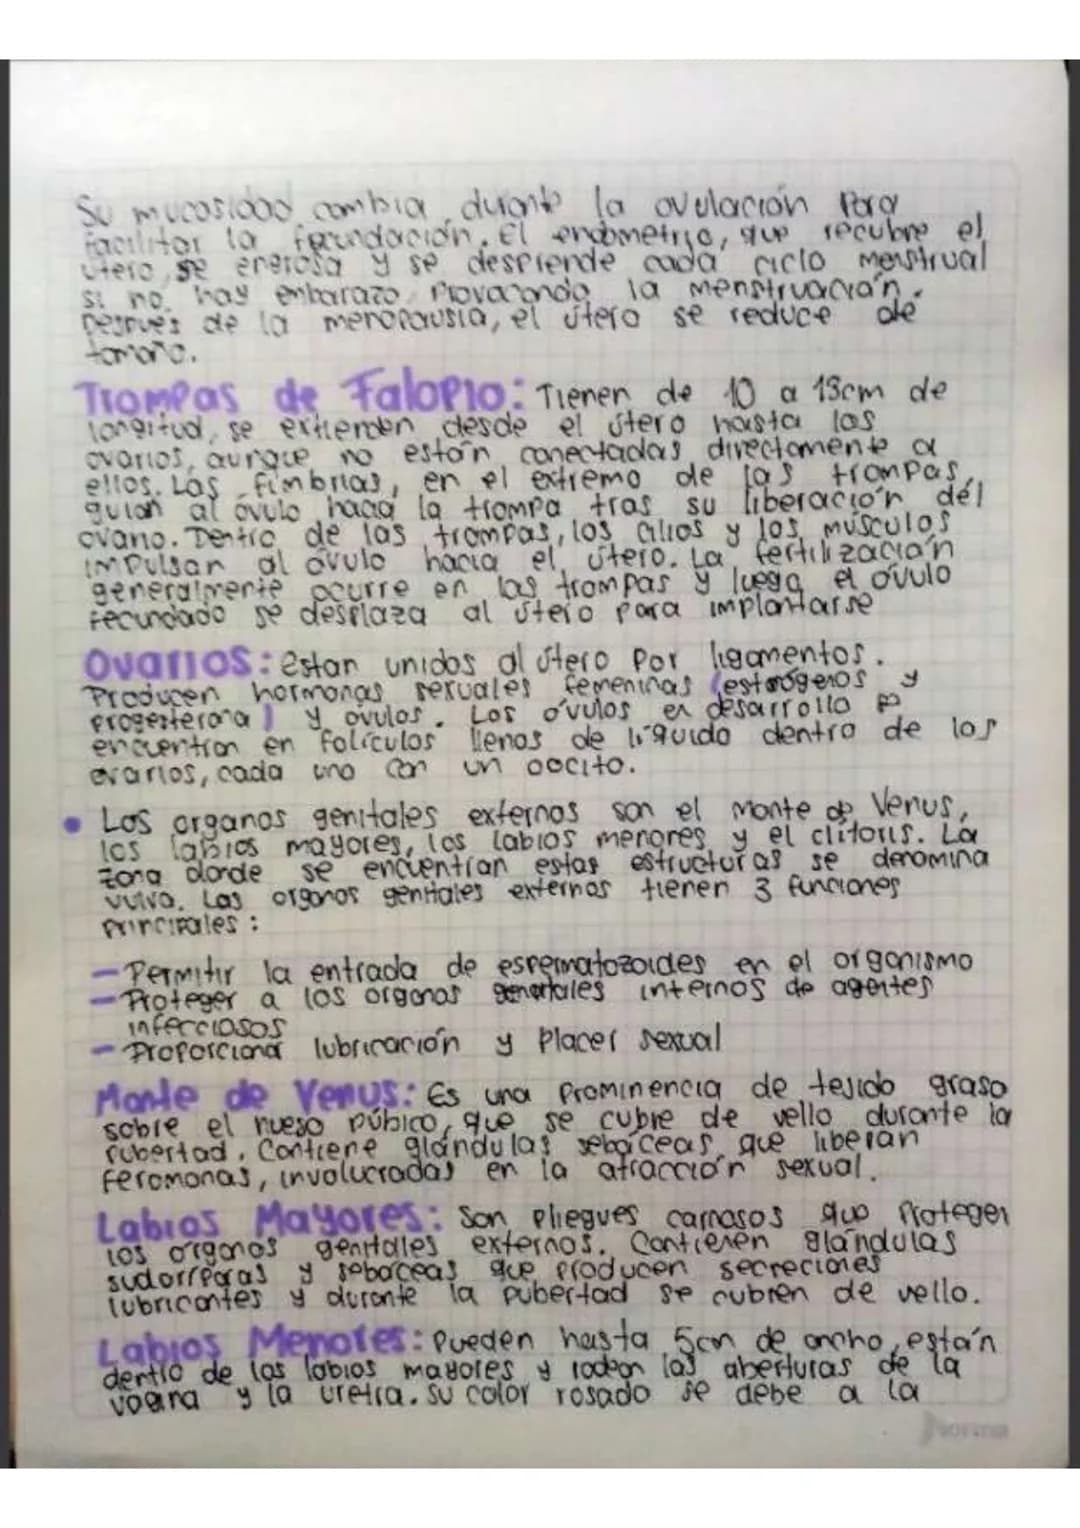 Su mucosidad cambia durante la ovulación para
facilitar la fecundación. El endometrio, que recubre el
útero, se engrosa y se desprende cada ciclo menstrual
si no hay embarazo, provocando la menstruación.
Después de la menopausia, el útero se reduce de
tamaño.
Trompas de Falopio: Tienen de 10 a 13cm de
longitud, se extienden desde el útero hasta los
ovarios, aunque no están conectadas directamente a
ellos. Las fimbrias, en el extremo de las trompas,
guían al óvulo hacia la trompa tras su liberación del
ovario. Dentro de las trompas, los cilios y los músculos
impulsan al óvulo hacia el útero. La fertilización
generalmente ocurre en las trompas y luego el óvulo
fecundado se desplaza al útero para implantarse
Ovarios: están unidos al útero por ligamentos.
Producen hormonas sexuales femeninas (estrógenos y
progesterona) y óvulos. Los óvulos en desarrollo se
encuentran en folículos llenos de líquido dentro de los
ovarios, cada uno con un oocito.
• Los organos genitales externos son el Monte de Venus,
los labios mayores, los labios menores y el clítoris. La
zona donde se encuentran estas estructuras se denomina
vulva. Los organos genitales externos tienen 3 funciones
principales:
- Permitir la entrada de espermatozoides en el organismo
- Proteger a los organos internos de agentes
infecciosos
- Proporcionar lubricación y placer sexual
Monte de Venus: Es una prominencia de tejido graso
sobre el hueso púbico, que se cubre de vello durante la
pubertad. Contiene glándulas sebáceas que liberan
feromonas, involucradas en la atracción sexual.
Labios Mayores: Son pliegues carnosos que protegen
los órganos genitales externos. Contienen glándulas
sudoríparas y sebáceas que producen secreciones
lubricantes y durante la pubertad se cubren de vello.
Labios Menores: Pueden hasta 5cm de ancho, están
dentro de los labios mayores y rodean las aberturas de la
vagina y la uretra. Su color rosado se debe a la
Norma